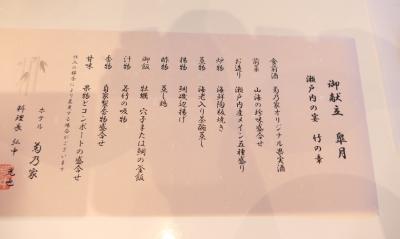 御献立 皐月
瀬戸内の宴 竹の章
食前酒 菊乃家オリジナル果実酒
前菜 山海の珍味盛合せ
お造り 瀬戸内産メイン五種盛り
炉物 海鮮陶板焼き
蒸物 海老入り茶碗蒸し
揚物 鯛磯辺揚げ
酢物 蒸し鶏
御飯 牡蠣 穴子または鯛の釜飯
汁物 若竹の吸物
香物 自家製香物盛合せ
甘味 果物とコンポートの盛合せ
仕入の都合により変更する場合がございます
ホテル 菊乃家
料理長 弘中